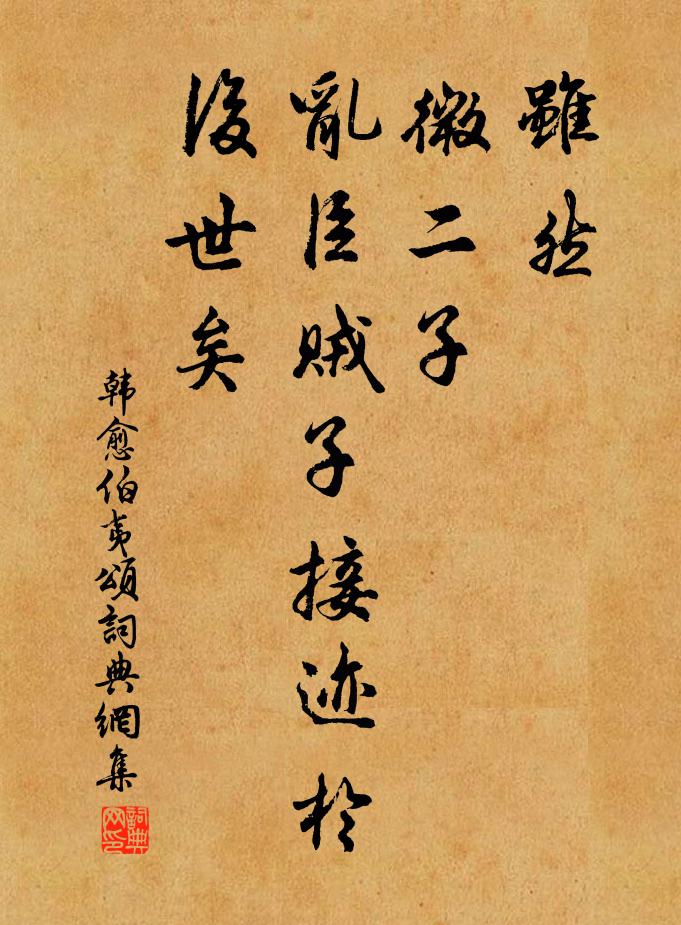 雖然
微二子
亂臣賊子接迹於
後世矣
韩愈伯夷頌詞典網集
詞典网印